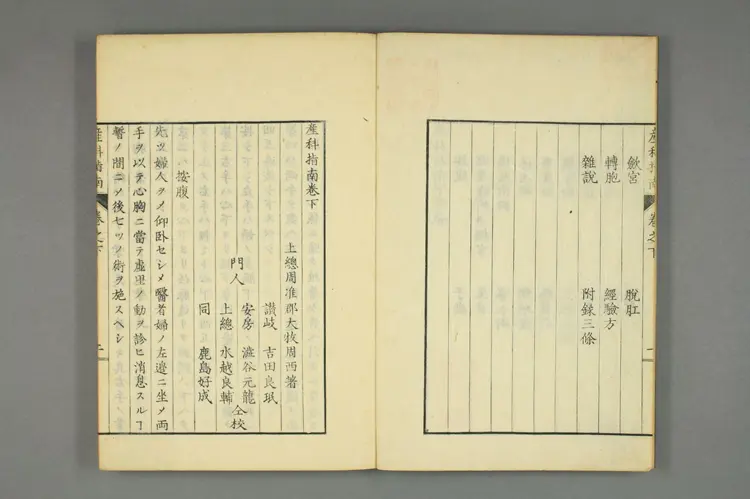 産科指南 卷之下 一
歛宮 脫肛
轉胞 經驗方
雜說 附錄三條
産科指南卷下
上總周准郡大牧周西著
讃岐 吉田良珉
門人 安房 澁谷元龍
上總 水越良輔 仝校
同 鹿島好成
按腹
先ツ婦人ヲメ仰臥セシメ醫者婦ノ左邉ニ坐メ両
手ヲ以テ心胸ニ當テ虛里ノ動ヲ診ヒ消息スルヿ
暫ノ間ニメ後七ツノ術ヲ施スヘシ
産科指南 卷之下 二